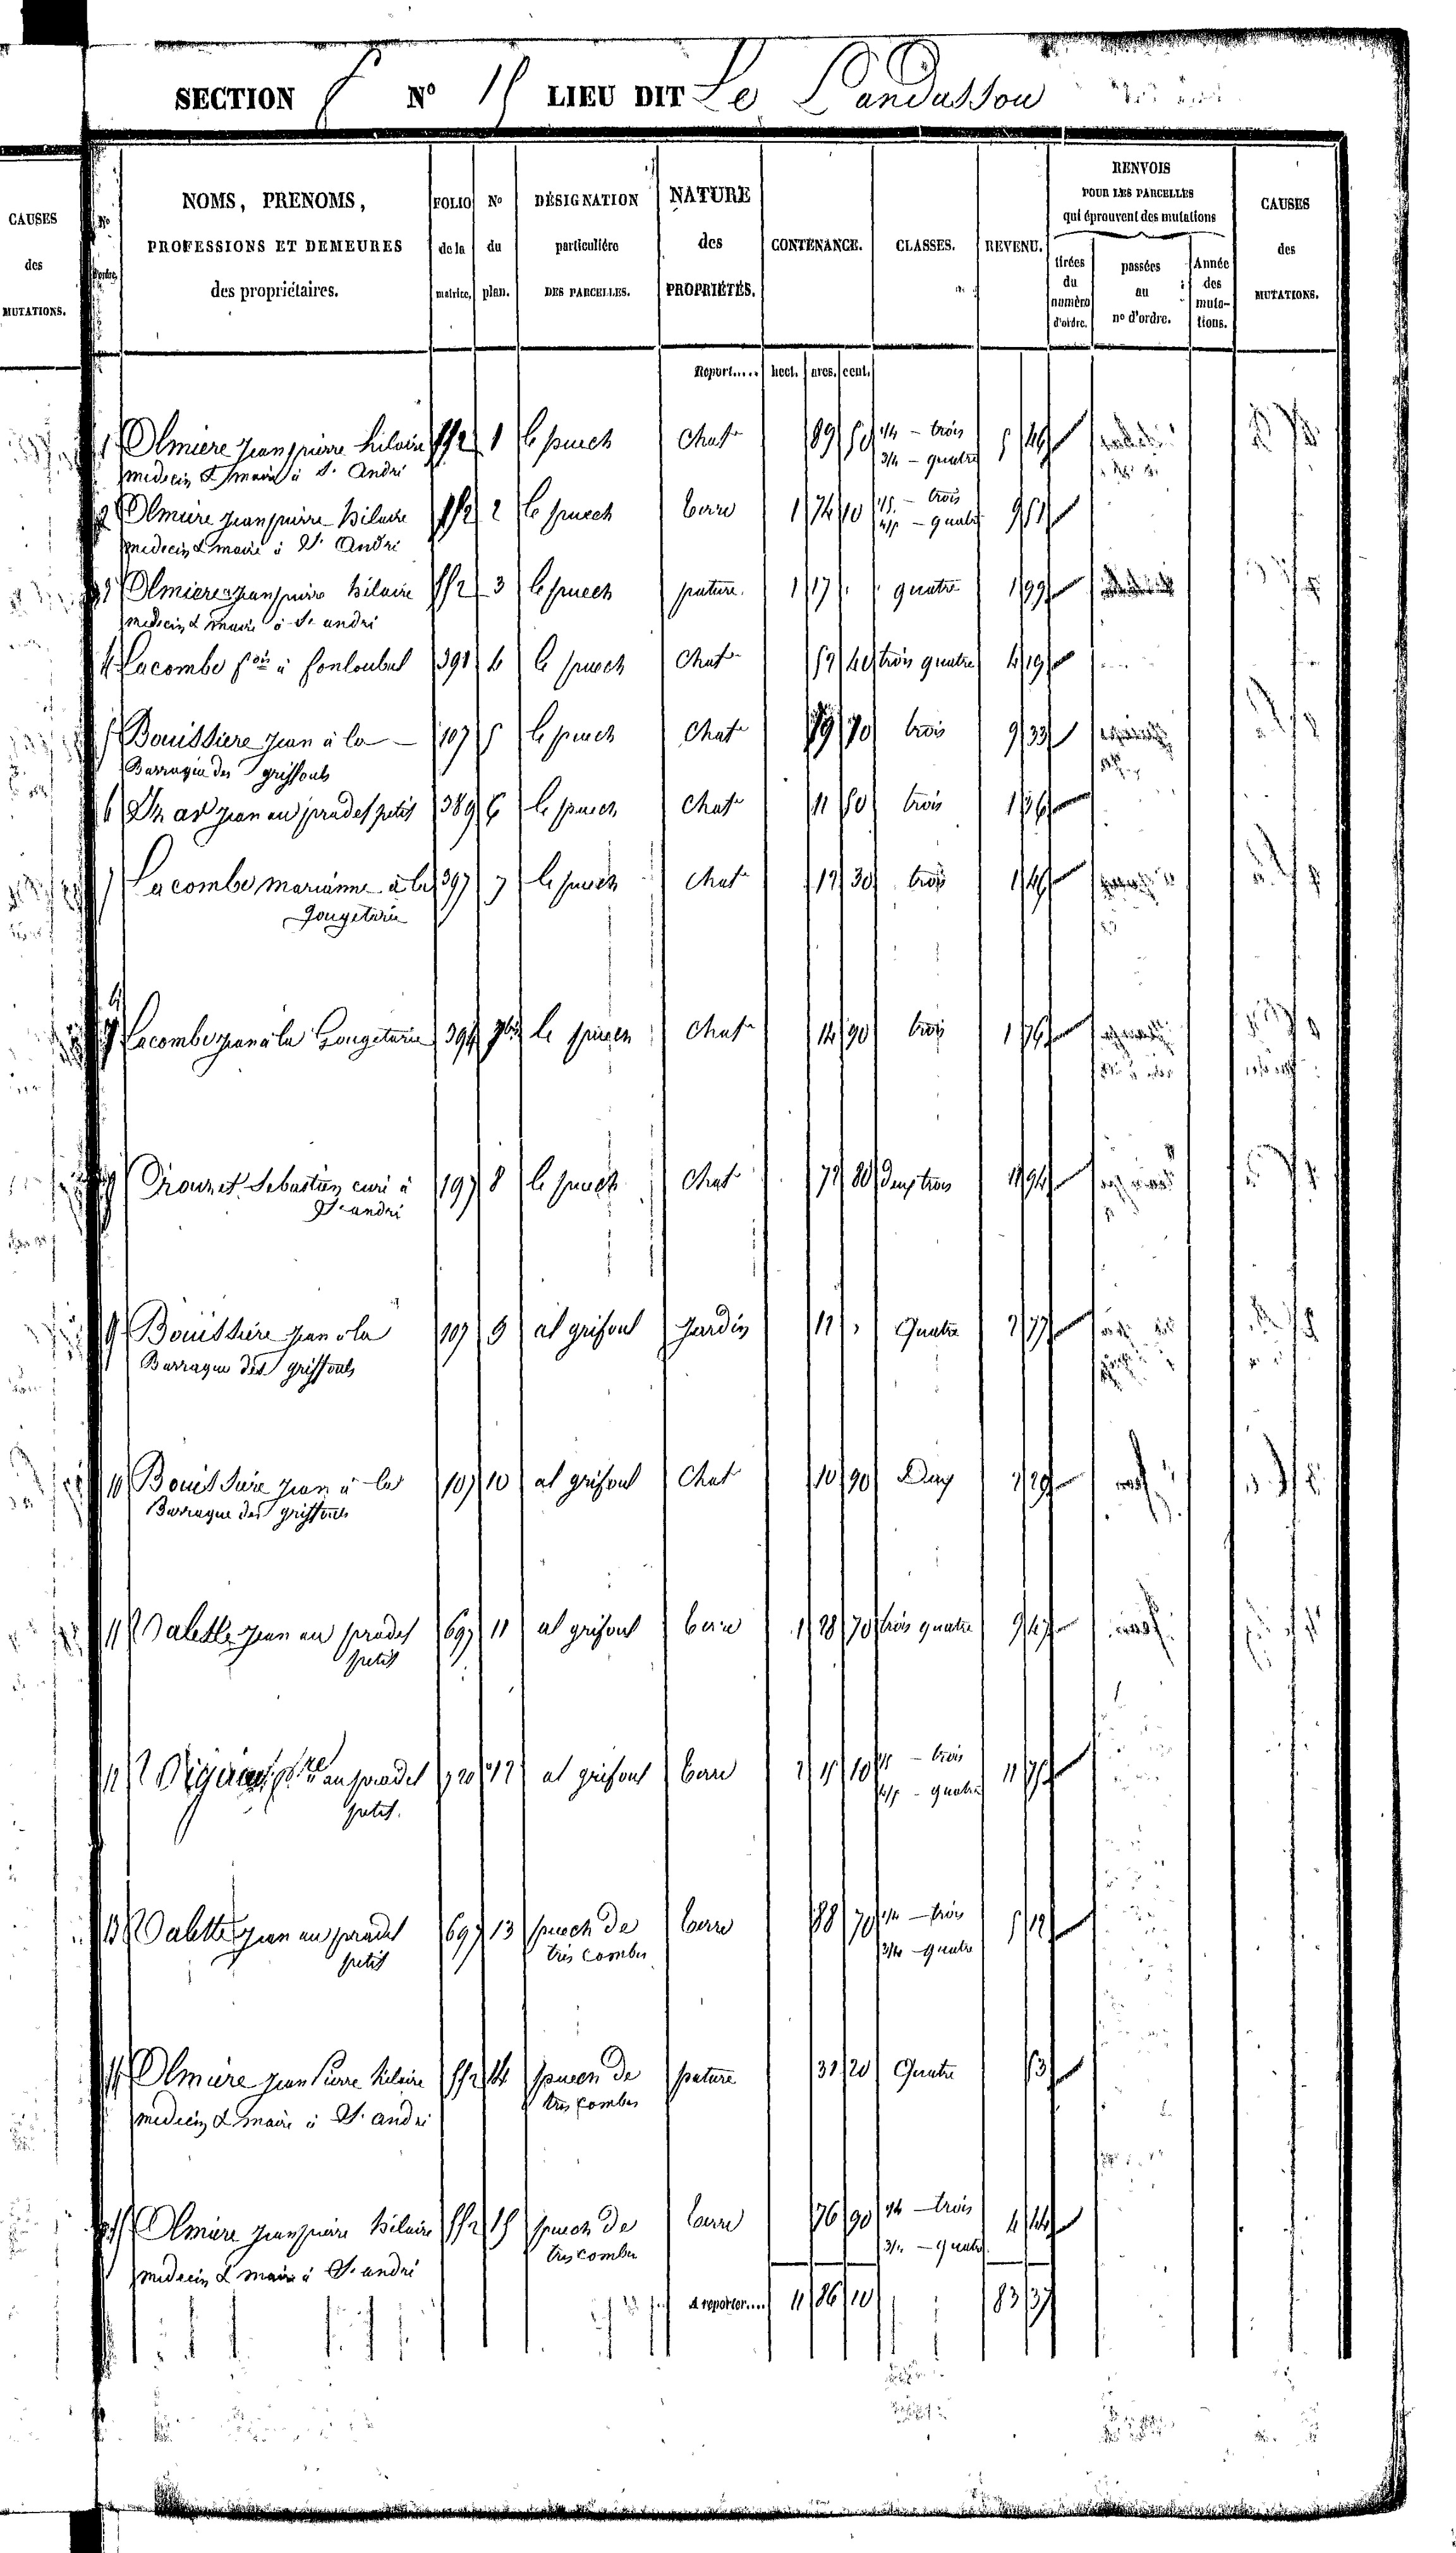 SECTION N° 15 LIEU DIT Le Landasson
CAUSES des MUTATIONS.
N° d'ordre.
NOMS, PRENOMS, PROFESSIONS ET DEMEURES des propriétaires.
FOLIO de la matrice.
N° du plan.
DÉSIGNATION particulière DES PARCELLES.
NATURE des PROPRIÉTÉS.
CONTENANCE.
CLASSES.
REVENU.
RENVOIS POUR LES PARCELLES qui éprouvent des mutations
tirées du numéro d'ordre.
passées au n° d'ordre.
Année des mutations.
CAUSES des MUTATIONS.
Report..... hect. ares. cent.
1 Olmiere jean pierre hilaire 552 1 le puech Chat. 89 50 1/4 - trois 5 46
medecin & maire à St. André 3/4 - quatre
2 Olmiere jean pierre hilaire 552 2 le puech terre 1 74 10 1/5 - trois 9 51
medecin & maire à St. André 4/5 - quatre
3 Olmiere jean pierre hilaire 552 3 le puech pature 1 17 quatre 1 99
medecin & maire à St. andré
4 Lacombe fois à fonloubal 391 4 le puech Chat. 59 40 trois quatre 4 19
5 Bouissiere jean à la 107 5 le puech Chat. 79 70 trois 9 33
Barraque des griffouls
6 jean au pradet petit 389 6 le puech Chat. 11 50 trois 1 36
7 Lacombe marianne à la 397 7 le puech Chat. 12 30 trois 1 46
Gougetarie
Lacombe jean à la Gougetarie 394 7bis le puech Chat. 14 90 trois 1 76
Crouzet Sebastien curé à 197 8 le puech Chat. 72 80 Deux trois 11 94
St. andré
9 Bouissiere jean à la 107 9 al grifoul jardin 12 Quatre 2 77
Barraque des griffouls
10 Bouissiere jean à la 107 10 al grifoul Chat. 10 90 Deux 2 29
Barraque des griffouls
11 Valette jean au pradet 697 11 al grifoul terre 1 28 70 trois quatre 9 47
petit
12 au pradet 720 12 al grifoul terre 2 15 10 1/5 - trois 11 75
petit. 4/5 - quatre
13 Valette jean au pradet 697 13 puech de terre 88 70 1/4 - trois 5 12
petit tres combes 3/4 - quatre
14 Olmiere jean Pierre hilaire 552 14 puech de pature 31 20 Quatre 53
medecin & maire à St. andré tres combes
15 Olmiere jean pierre hilaire 552 15 puech de terre 76 90 1/4 - trois 4 44
medecin & maire à St. andré tres combes 3/4 - quatre
A reporter.... 11 86 10 83 37